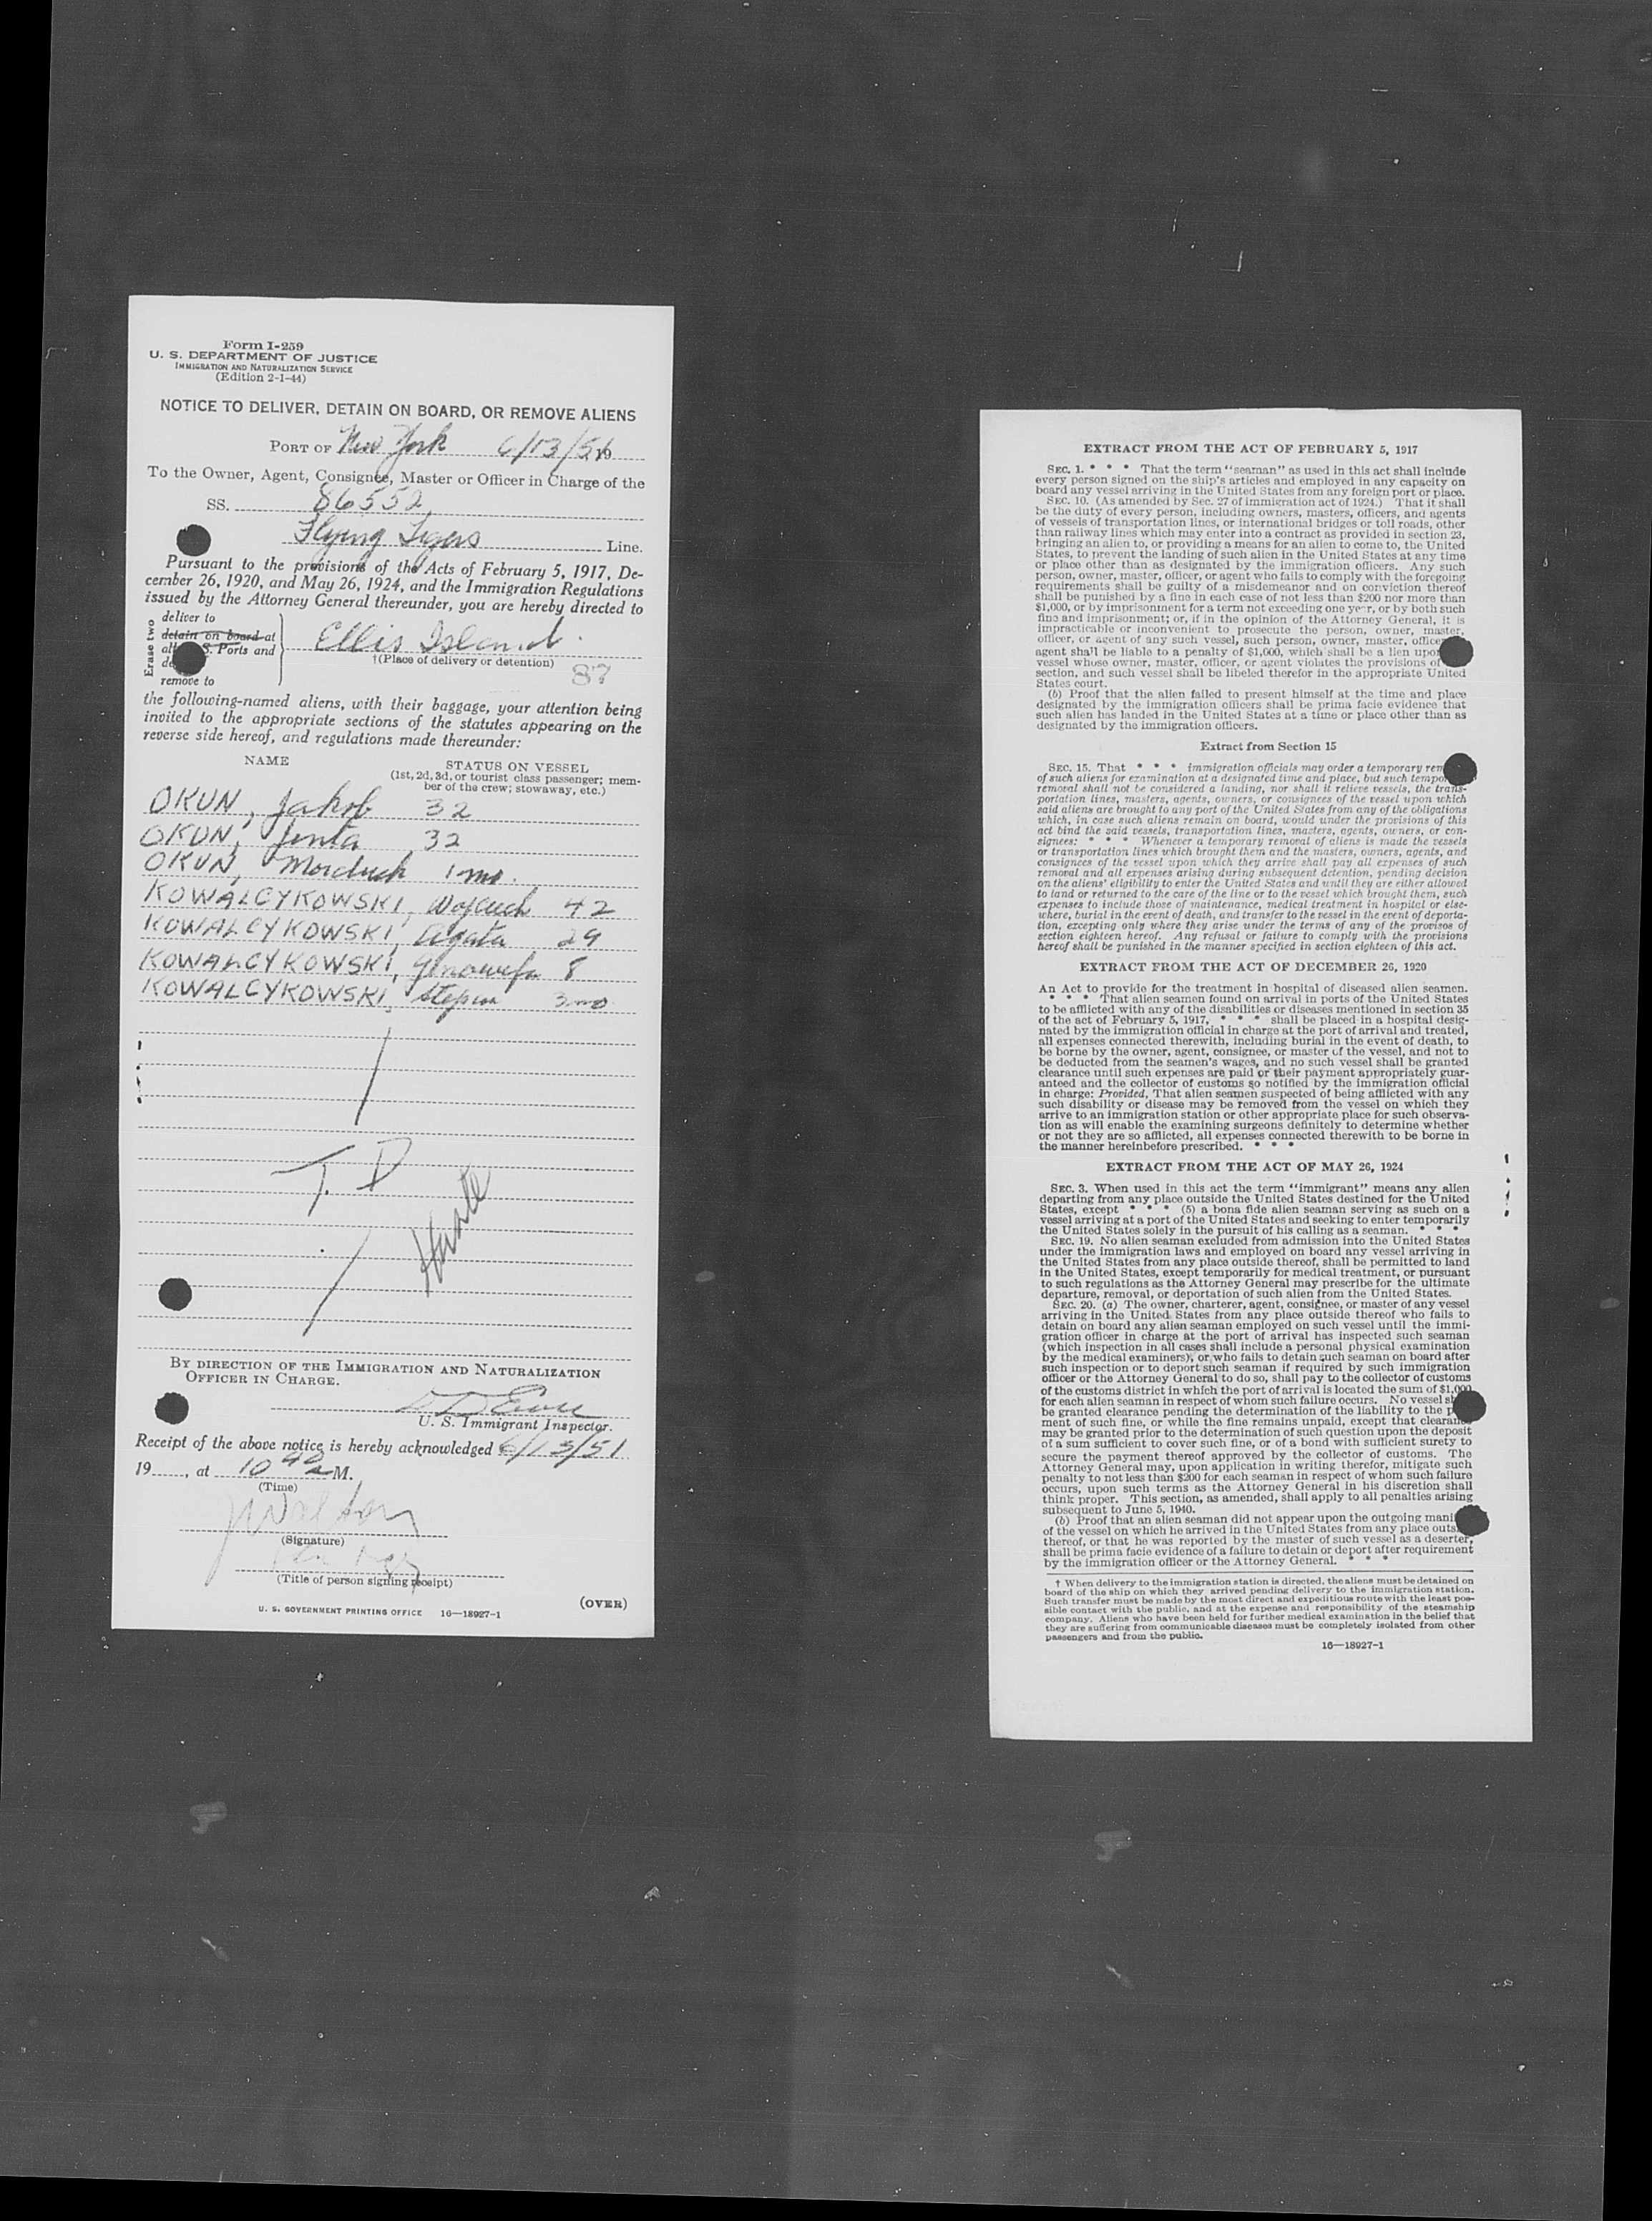 Form I-259
U. S. DEPARTMENT OF JUSTICE
IMMIGRATION AND NATURALIZATION SERVICE
(Edition 2-1-44)
NOTICE TO DELIVER, DETAIN ON BOARD, OR REMOVE ALIENS
PORT OF New York 6/13/51
To the Owner, Agent, Consignee, Master or Officer in Charge of the
SS. 86552
Flying Tigers Line.
Pursuant to the provisions of the Acts of February 5, 1917, De-
cember 26, 1920, and May 26, 1924, and the Immigration Regulations
issued by the Attorney General thereunder, you are hereby directed to
Erase two
deliver to
detain on board at
S. Ports and
remove to
Ellis Island.
†(Place of delivery or detention)
the following-named aliens, with their baggage, your attention being
invited to the appropriate sections of the statutes appearing on the
reverse side hereof, and regulations made thereunder:
NAME
STATUS ON VESSEL
(1st, 2d, 3d, or tourist class passenger; mem-
ber of the crew; stowaway, etc.)
OKUN, Jakob 32
OKUN, Jenta 32
OKUN, Morduch 1 mo.
KOWALCYKOWSKI, Wojciech 42
KOWALCYKOWSKI, Agata 29
KOWALCYKOWSKI, Genowefa 8
KOWALCYKOWSKI, 3 mo
T. D
BY DIRECTION OF THE IMMIGRATION AND NATURALIZATION
OFFICER IN CHARGE.
U. S. Immigrant Inspector.
Receipt of the above notice is hereby acknowledged 6/13/51
19____, at 10 40 a M.
(Time)
(Signature)
(Title of person signing receipt)
U. S. GOVERNMENT PRINTING OFFICE 16—18927-1
(OVER)
EXTRACT FROM THE ACT OF FEBRUARY 5, 1917
SEC. 1. * * * That the term "seaman" as used in this act shall include
every person signed on the ship's articles and employed in any capacity on
board any vessel arriving in the United States from any foreign port or place.
SEC. 10. (As amended by Sec. 27 of immigration act of 1924.) That it shall
be the duty of every person, including owners, masters, officers, and agents
of vessels of transportation lines, or international bridges or toll roads, other
than railway lines which may enter into a contract as provided in section 23,
bringing an alien to, or providing a means for an alien to come to, the United
States, to prevent the landing of such alien in the United States at any time
or place other than as designated by the immigration officers. Any such
person, owner, master, officer, or agent who fails to comply with the foregoing
requirements shall be guilty of a misdemeanor and on conviction thereof
shall be punished by a fine in each case of not less than $200 nor more than
$1,000, or by imprisonment for a term not exceeding one year, or by both such
fine and imprisonment; or, if in the opinion of the Attorney General, it is
impracticable or inconvenient to prosecute the person, owner, master,
officer, or agent of any such vessel, such person, owner, master, officer
agent shall be liable to a penalty of $1,000, which shall be a lien upon
vessel whose owner, master, officer, or agent violates the provisions of
section, and such vessel shall be libeled therefor in the appropriate United
States court.
(b) Proof that the alien failed to present himself at the time and place
designated by the immigration officers shall be prima facie evidence that
such alien has landed in the United States at a time or place other than as
designated by the immigration officers.
Extract from Section 15
SEC. 15. That * * * immigration officials may order a temporary rem
of such aliens for examination at a designated time and place, but such tempo
removal shall not be considered a landing, nor shall it relieve vessels, the trans-
portation lines, masters, agents, owners, or consignees of the vessel upon which
said aliens are brought to any port of the United States from any of the obligations
which, in case such aliens remain on board, would under the provisions of this
act bind the said vessels, transportation lines, masters, agents, owners, or con-
signees: * * * Whenever a temporary removal of aliens is made the vessels
or transportation lines which brought them and the masters, owners, agents, and
consignees of the vessel upon which they arrive shall pay all expenses of such
removal and all expenses arising during subsequent detention, pending decision
on the aliens' eligibility to enter the United States and until they are either allowed
to land or returned to the care of the line or to the vessel which brought them, such
expenses to include those of maintenance, medical treatment in hospital or else-
where, burial in the event of death, and transfer to the vessel in the event of deporta-
tion, excepting only where they arise under the terms of any of the provisos of
section eighteen hereof. Any refusal or failure to comply with the provisions
hereof shall be punished in the manner specified in section eighteen of this act.
EXTRACT FROM THE ACT OF DECEMBER 26, 1920
An Act to provide for the treatment in hospital of diseased alien seamen.
* * * That alien seamen found on arrival in ports of the United States
to be afflicted with any of the disabilities or diseases mentioned in section 35
of the act of February 5, 1917, * * * shall be placed in a hospital desig-
nated by the immigration official in charge at the port of arrival and treated,
all expenses connected therewith, including burial in the event of death, to
be borne by the owner, agent, consignee, or master of the vessel, and not to
be deducted from the seamen's wages, and no such vessel shall be granted
clearance until such expenses are paid or their payment appropriately guar-
anteed and the collector of customs so notified by the immigration official
in charge: Provided, That alien seamen suspected of being afflicted with any
such disability or disease may be removed from the vessel on which they
arrive to an immigration station or other appropriate place for such observa-
tion as will enable the examining surgeons definitely to determine whether
or not they are so afflicted, all expenses connected therewith to be borne in
the manner hereinbefore prescribed. * * *
EXTRACT FROM THE ACT OF MAY 26, 1924
SEC. 3. When used in this act the term "immigrant" means any alien
departing from any place outside the United States destined for the United
States, except * * * (5) a bona fide alien seaman serving as such on a
vessel arriving at a port of the United States and seeking to enter temporarily
the United States solely in the pursuit of his calling as a seaman. * * *
SEC. 19. No alien seaman excluded from admission into the United States
under the immigration laws and employed on board any vessel arriving in
the United States from any place outside thereof, shall be permitted to land
in the United States, except temporarily for medical treatment, or pursuant
to such regulations as the Attorney General may prescribe for the ultimate
departure, removal, or deportation of such alien from the United States.
SEC. 20. (a) The owner, charterer, agent, consignee, or master of any vessel
arriving in the United States from any place outside thereof who fails to
detain on board any alien seaman employed on such vessel until the immi-
gration officer in charge at the port of arrival has inspected such seaman
(which inspection in all cases shall include a personal physical examination
by the medical examiners), or who fails to detain such seaman on board after
such inspection or to deport such seaman if required by such immigration
officer or the Attorney General to do so, shall pay to the collector of customs
of the customs district in which the port of arrival is located the sum of $1,000
for each alien seaman in respect of whom such failure occurs. No vessel sh
be granted clearance pending the determination of the liability to the p
ment of such fine, or while the fine remains unpaid, except that clearance
may be granted prior to the determination of such question upon the deposit
of a sum sufficient to cover such fine, or of a bond with sufficient surety to
secure the payment thereof approved by the collector of customs. The
Attorney General may, upon application in writing therefor, mitigate such
penalty to not less than $200 for each seaman in respect of whom such failure
occurs, upon such terms as the Attorney General in his discretion shall
think proper. This section, as amended, shall apply to all penalties arising
subsequent to June 5, 1940.
(b) Proof that an alien seaman did not appear upon the outgoing mani
of the vessel on which he arrived in the United States from any place outs
thereof, or that he was reported by the master of such vessel as a deserter,
shall be prima facie evidence of a failure to detain or deport after requirement
by the immigration officer or the Attorney General. * * *
† When delivery to the immigration station is directed, the aliens must be detained on
board of the ship on which they arrived pending delivery to the immigration station.
Such transfer must be made by the most direct and expeditious route with the least pos-
sible contact with the public, and at the expense and responsibility of the steamship
company. Aliens who have been held for further medical examination in the belief that
they are suffering from communicable diseases must be completely isolated from other
passengers and from the public.
16—18927-1